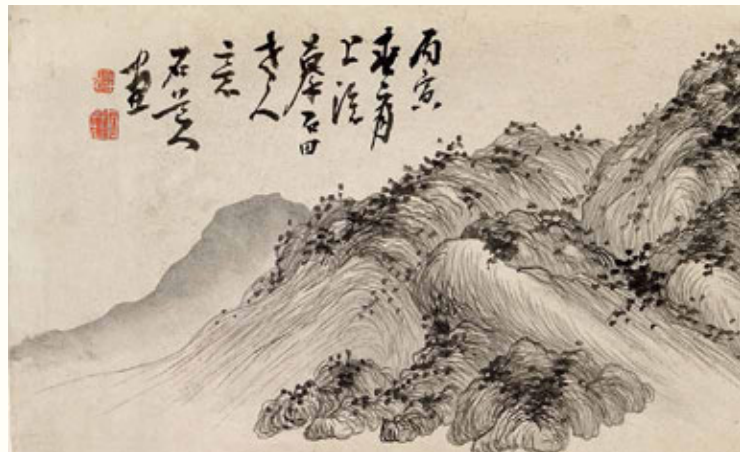 丙寅
春月
上浣
摹石田
老人
意
石人
画